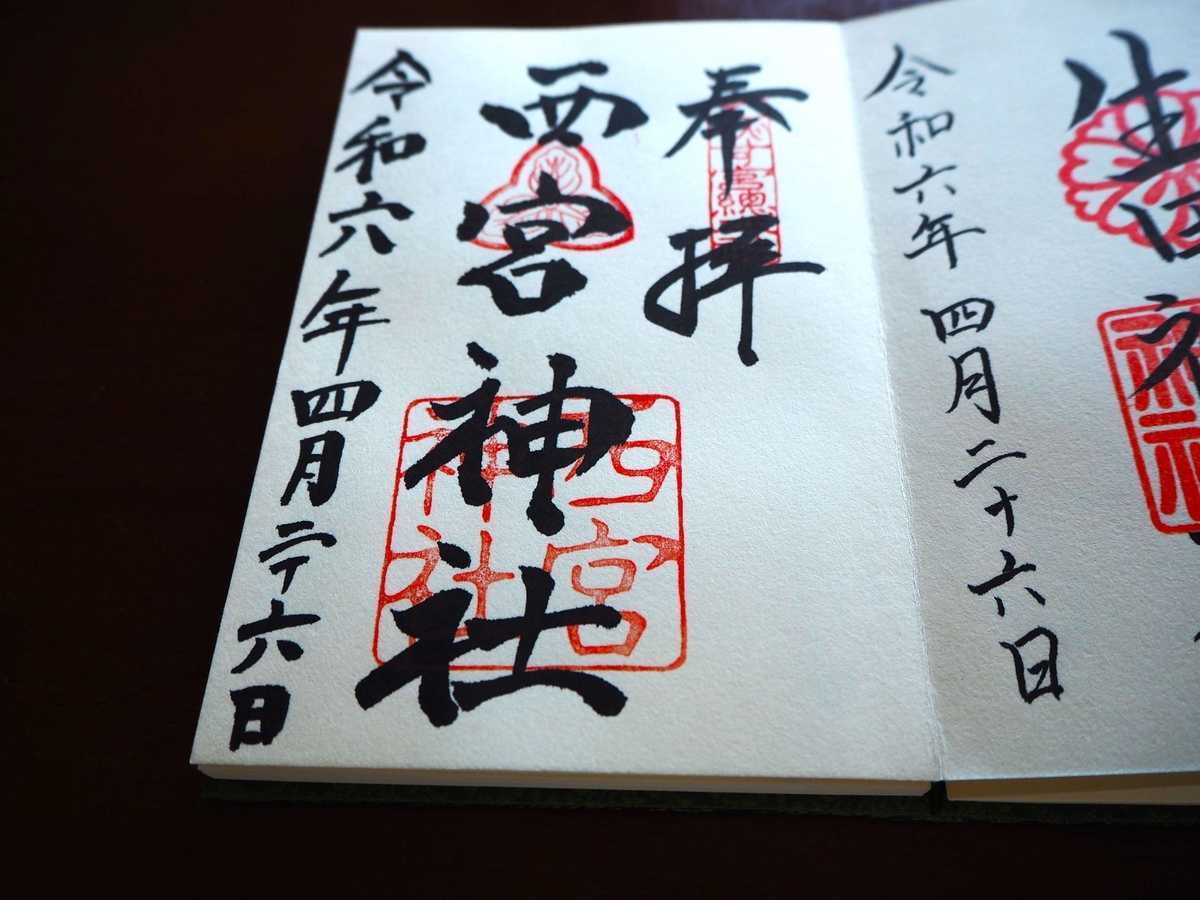 生田神
令和六年四月二十六日
奉拝
西宮神社
令和六年四月二十六日
西宮
神社